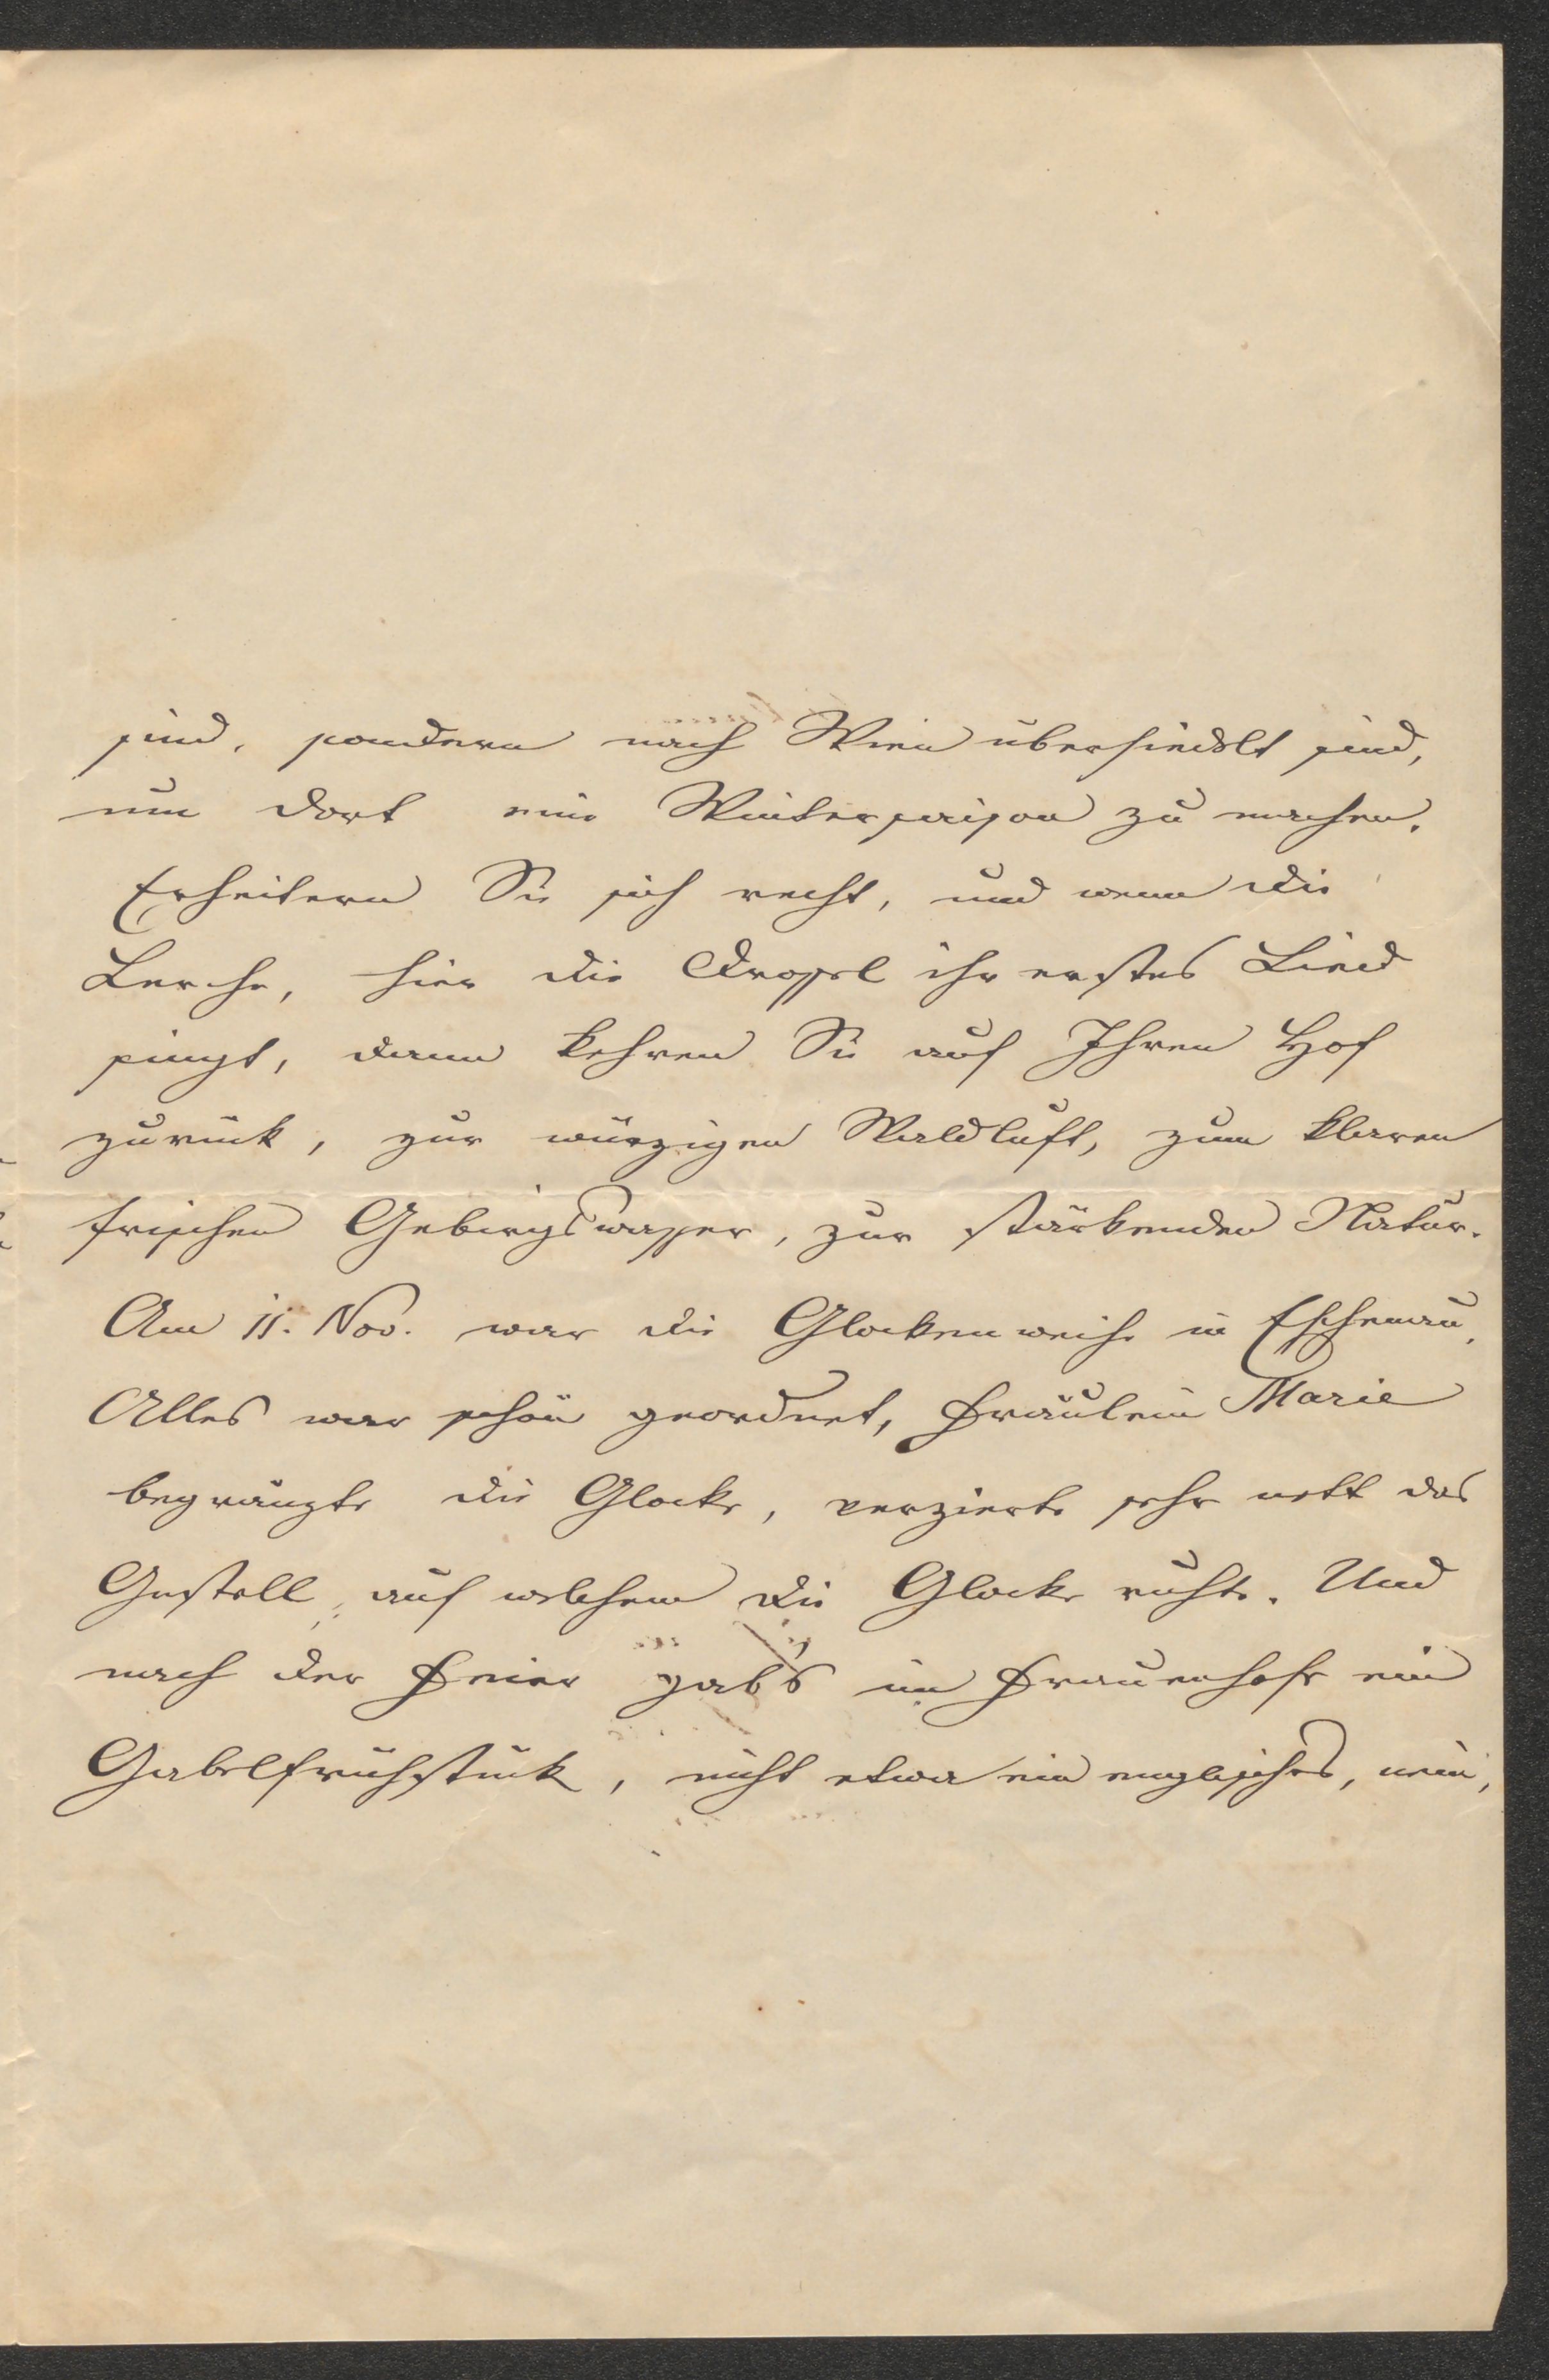 sind, sondern nach Wien übersiedelt sind,
um dort eine Wintersaison zu machen.
Erheitern Sie sich recht, und wenn die
Lerche, hier die Drossel ihr erstes Lied
singt, dann kehren Sie auf Ihren Hof
zurück, zur würzigen Waldluft, zum klaren
frischen Gebirgswasser, zur stärkenden Natur.
Am 11. Nov. war die Glockenweihe in Eschenau.
Alles war schön geordnet, Fräulein Marie
begränzte die Glocke, verzierte sehr nett das
Gestell, auf welchem die Glocke ruhte. Und
nach der Feier gab's im Frauenhofe ein
Gabelfrühstück, nicht etwa ein englisches, nein,